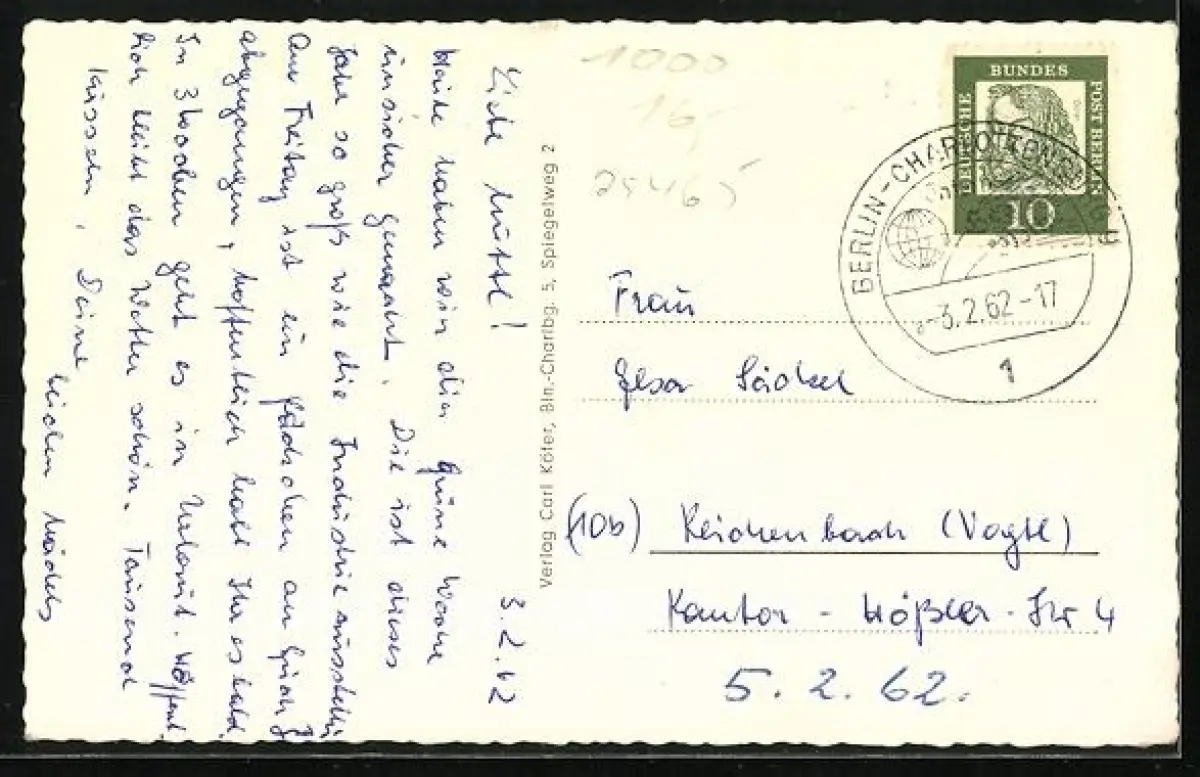 3.2.62
Liebe Mutti!
Heute haben wir die Grüne Woche
unsicher gemacht. Die ist dieses
Jahr so groß wie die Industrieausstellg.
Am Freitag ist ein Päckchen an Euch
abgegangen, hoffentlich habt Ihr es bald.
In 3 Wochen geht es in Urlaub. Hoffent-
lich bleibt das Wetter schön. Tausend
Küsschen, Deine
beiden Mädels
Verlag Carl Köfer, Bln.-Charlbg. 5, Spiegelweg 2
1000
16,-
25465
DEUTSCHE BUNDES POST BERLIN
10
BERLIN-CHARLOTTENBURG
-3.2.62-17
1
Frau
Gesa Säckel
(10b) Reichenbach (Vogtl)
Kantor - Str 4
5.2.62.